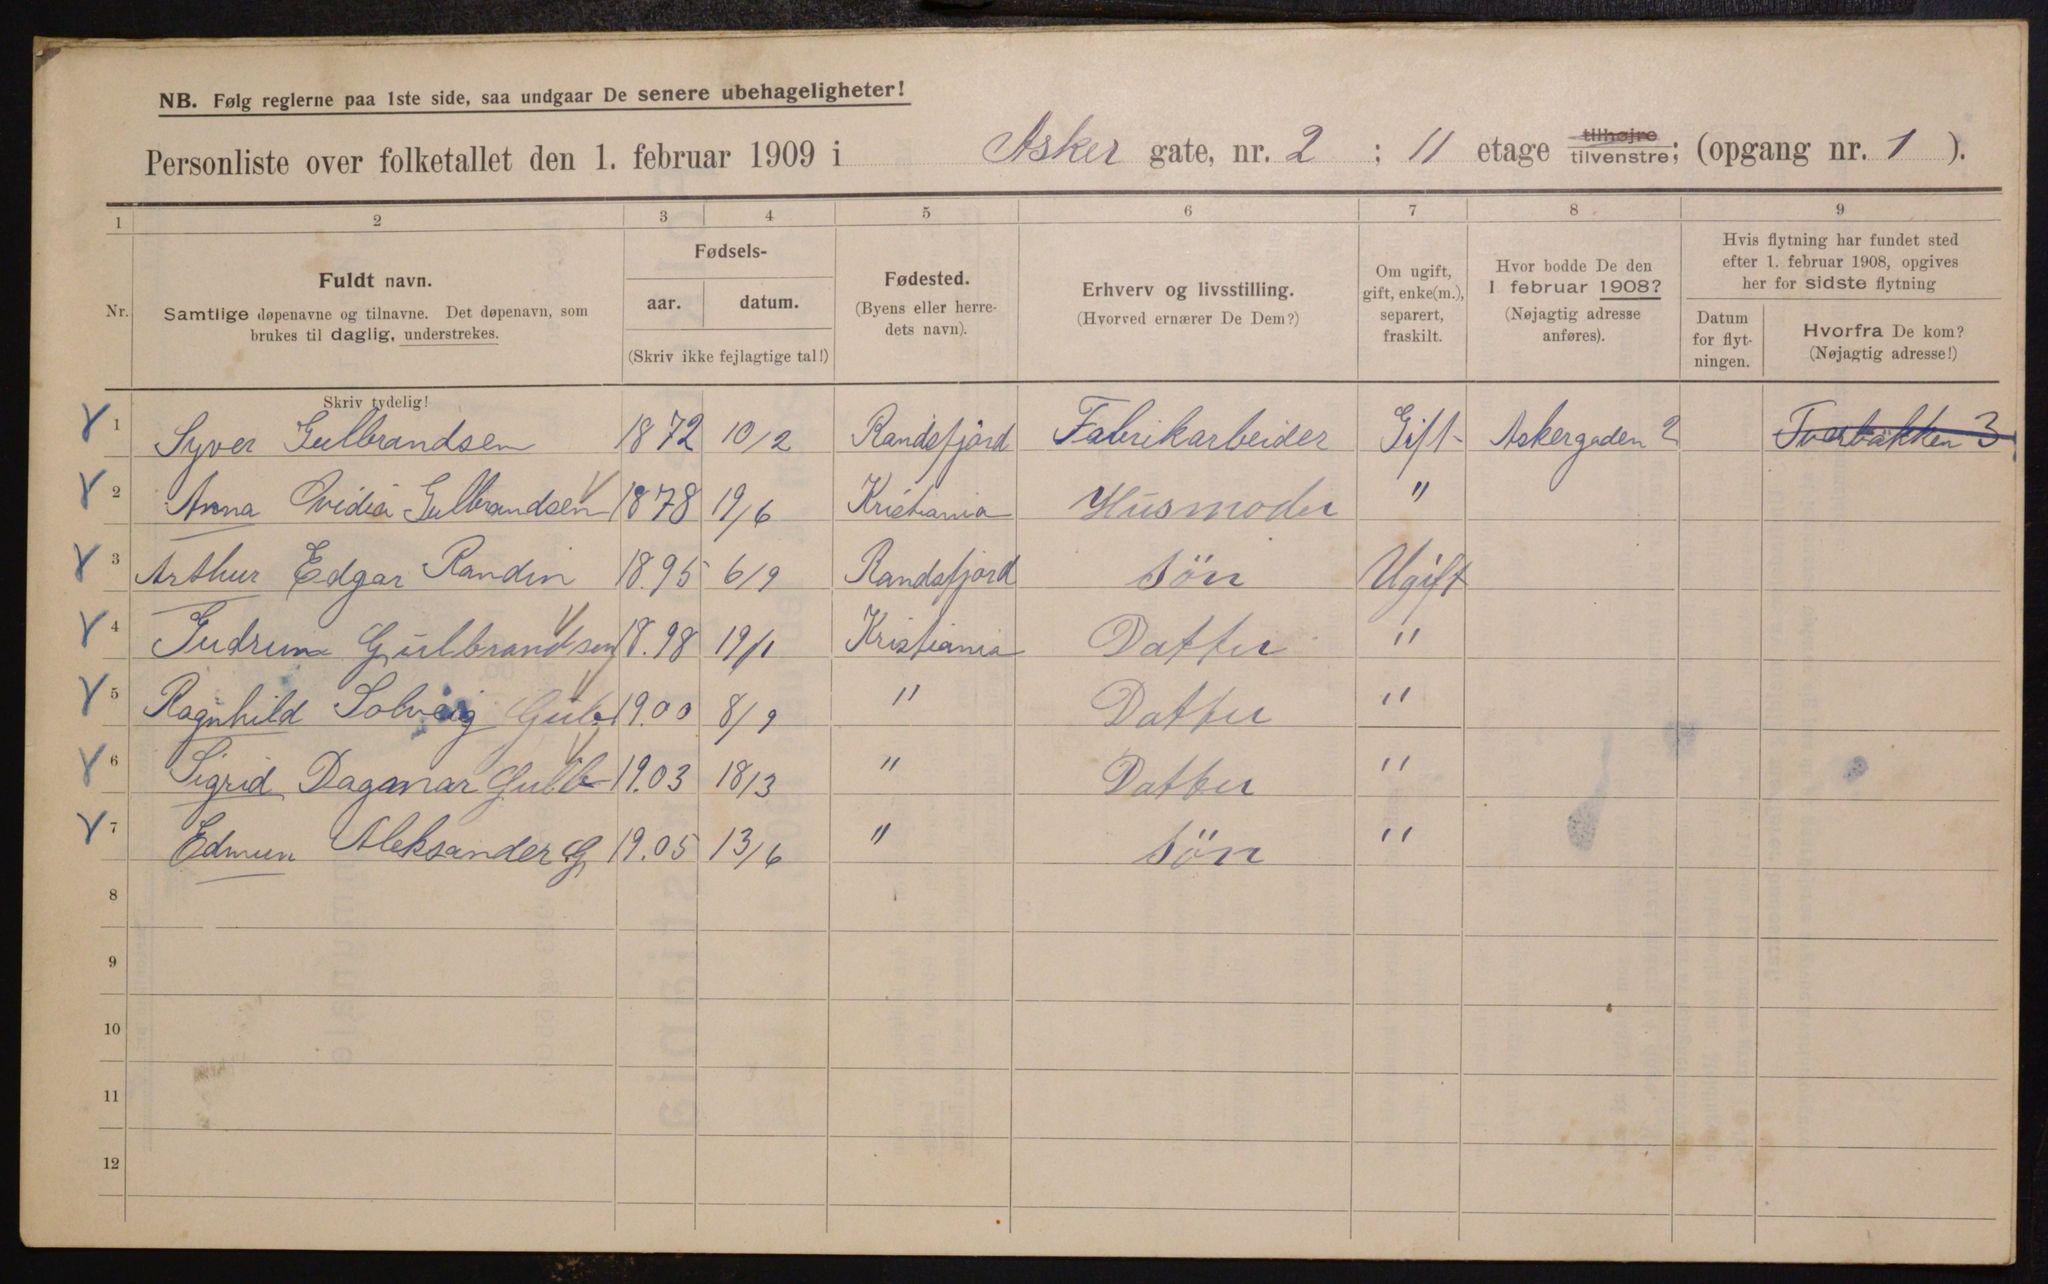 NB. Følg reglerne paa 1ste side, saa undgaar De senere ubehageligheter!
Personliste over folketallet den 1. februar 1909 i Asker gate, nr. 2 ; 11 etage tilhøjre tilvenstre; (opgang nr. 1 ).
1 2 3 4 5 6 7 8 9
Nr. Fuldt navn. Samtlige døpenavne og tilnavne. Det døpenavn, som brukes til daglig, understrekes.
Fødsels- aar. datum. (Skriv ikke fejlagtige tal!)
Fødested. (Byens eller herredets navn).
Erhverv og livsstilling. (Hvorved ernærer De Dem?)
Om ugift, gift, enke(m.), separert, fraskilt.
Hvor bodde De den 1 februar 1908? (Nøjagtig adresse anføres).
Hvis flytning har fundet sted efter 1. februar 1908, opgives her for sidste flytning
Datum for flytningen. Hvorfra De kom? (Nøjagtig adresse!)
Skriv tydelig!
1 Syver Gulbrandsen 1872 10/2 Randsfjord Fabrikarbeider Gift Askergaden 2 Tverbakken 3
2 Anna Ovidia Gulbrandsen 1878 19/6 Kristiania Husmoder "
3 Arthur Edgar Randin 18.95 6/9 Randsfjord Søn Ugift
4 Gudrun Gulbrandsen 18.98 19/1 Kristiania Datter "
5 Ragnhild Solveig Gulb 19.00 8/9 " Datter "
6 Sigrid Dagmar Gulb 19.03 18/3 " Datter "
7 Edmun Aleksander G 19.05 13/6 " Søn "
8
9
10
11
12